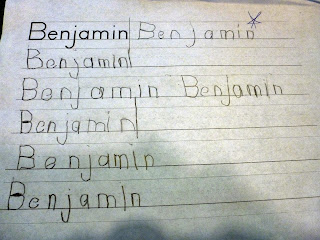 Benjamin Benjamin
Benjamin
Benjamin Benjamin
Benjamin
Benjamin
Benjamin